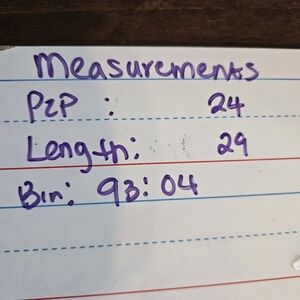 Measurements
P2P : 24
Length: 29
Bin: 93: 04